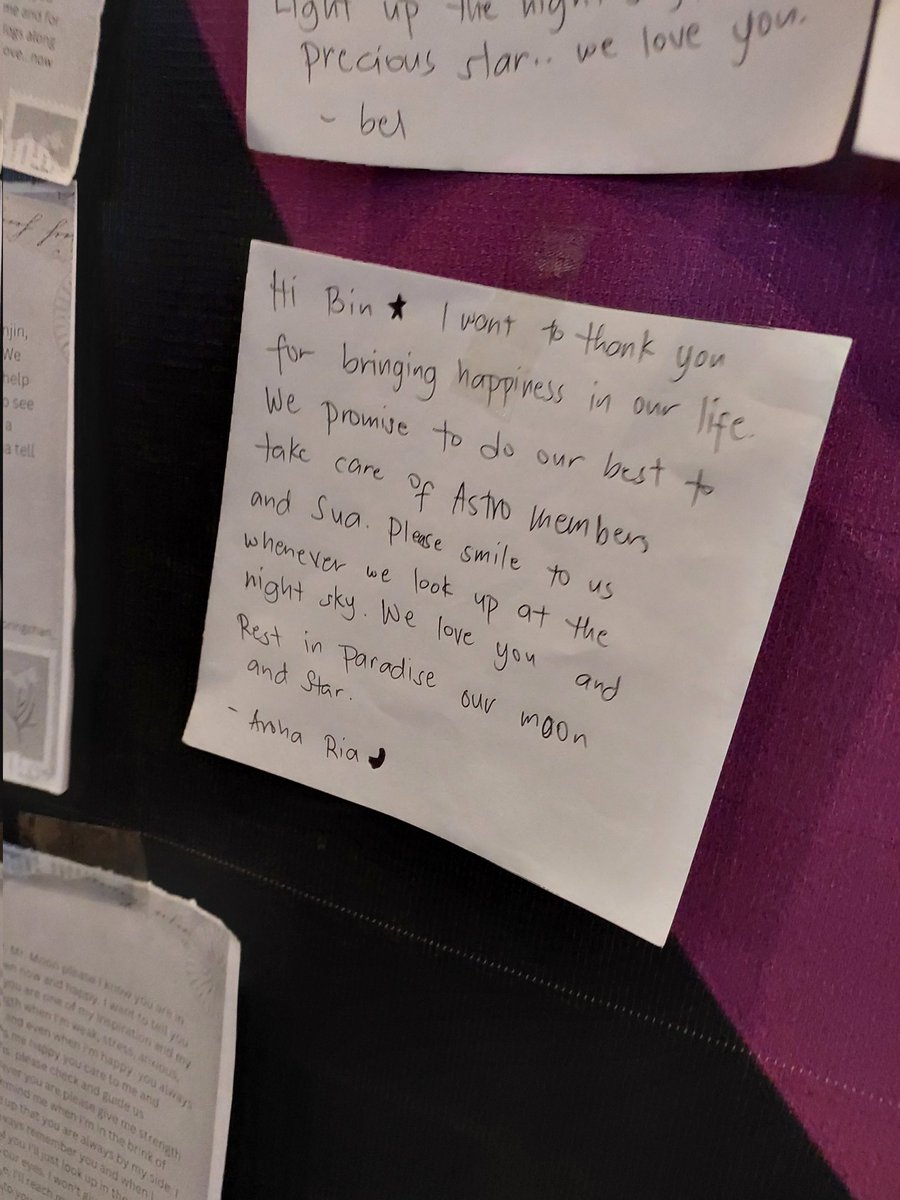 me and for
logs along
ove.. now
Light up the night
precious star.. we love you.
- bel
njin,
We
help
o see
a
a tell
Hi Bin ★ I want to thank you
for bringing happiness in our life.
We promise to do our best to
take care of Astro members
and Sua. Please smile to us
whenever we look up at the
night sky. We love you and
Rest in Paradise our moon
and star.
- Aroha Ria
Mr. Moon please I know you are in
now and happy. I want to tell you
you are one of my inspiration and my
when I'm weak, stress, anxious,
and even when I'm happy. you always
me happy you care to me and
please check and guide us
ever you are please give me strength
remind me when I'm in the brink of
up that you are always by my side. I
always remember you and when I
of you I'll just look up in the
your eyes. I won't
I'll reach
to you